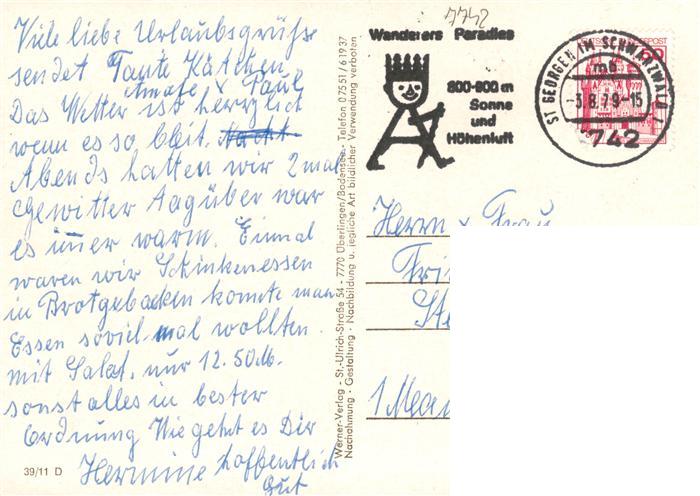 Viele liebe Urlaubsgrüße
sendet Tante Kätchen
Paul
Das Wetter ist herrlich
wenn es so bleit. Nacht
Abends hatten wir 2 mal
Gewitter tagüber war
es imer warm. Einmal
waren wir Schinkenessen
in Brotgebacken konnte man
Essen soviel mal wollten
mit Salat. nur 12.50 M.
sonst alles in bester
Ordnung Wie geht es Dir
Hermine hoffentlich
Gut
39/11 D
Werner-Verlag - St.-Ulrich-Straße 54 - 7770 Überlingen/Bodensee - Telefon 07551/61937
Nachahmung - Gestaltung - Nachbildung u. jegliche Art bildlicher Verwendung verboten
7742
Wanderers Paradies
800-900 m
Sonne
und
Höhenluft
ST GEORGEN IM SCHWARZWALD 1
mb
-3.8.79-15
7742
60
Herrn u Frau
1